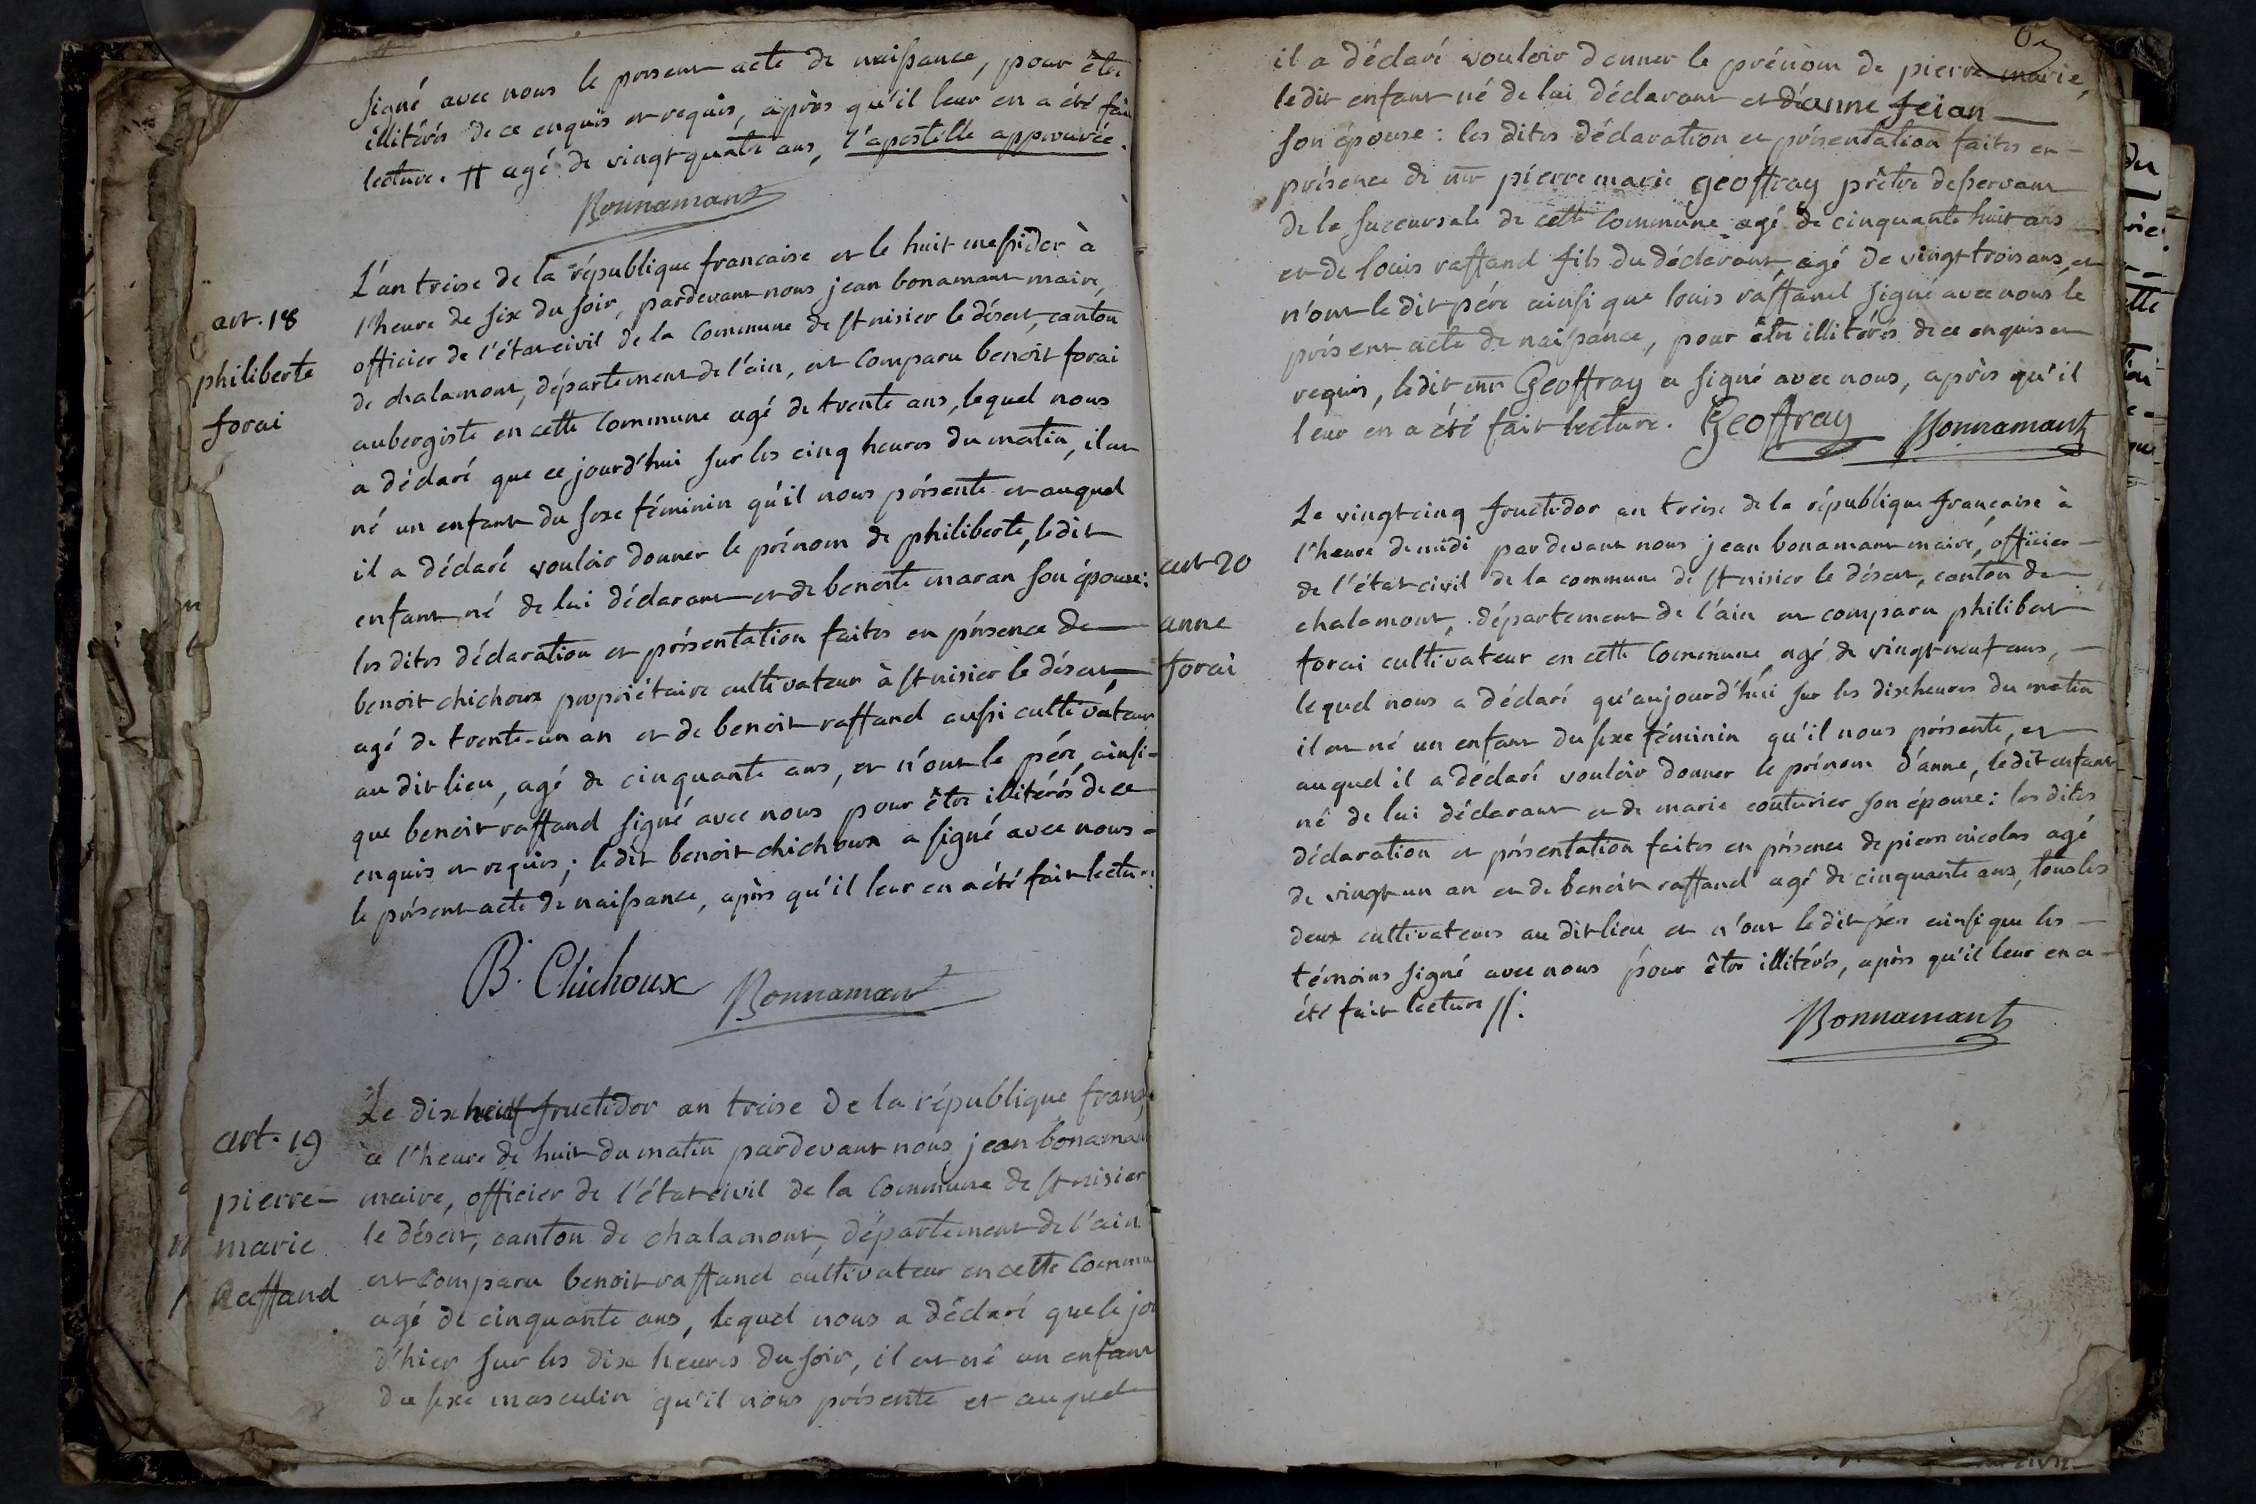 signé avec nous le présent acte de naissance, pour être
illitérés de ce enquis et requis, après qu'il leur en a été fait
lecture. # agé de vingt quatre ans, l'apostille approuvée.
Bonnamant
art. 18
philiberte
forai
L'an treise de la république francaise et le huit messidor à
l'heure de six du soir, pardevant nous jean bonamant maire,
officier de l'état civil de la Commune de st nisier le désert, canton
de chalamont, département de l'ain, est comparu benoit forai
aubergiste en cette Commune agé de trente ans, lequel nous
a déclaré que ce jourd'hui sur les cinq heures du matin, il est
né un enfant du sexe féminin qu'il nous présente et auquel
il a déclaré vouloir donner le prénom de philiberte, ledit
enfant né de lui déclarant et de benoite maran son épouse:
les dites déclaration et présentation faites en présence de
benoit chichoux propriétaire cultivateur à st nisier le désert,
agé de trente-un an et de benoit raffand aussi cultivateur
au dit lieu, agé de cinquante ans, et n'ont le père, ainsi-
que benoit raffand signé avec nous pour être illitérés de ce
enquis et requis; ledit benoit chichoux a signé avec nous -
le présent acte de naissance, après qu'il leur en a été fait lecture.
B. Chichoux Bonnamant
art. 19
pierre-
marie
Raffand
Le dix huit fructidor an treise de la république franç
à l'heure de huit du matin pardevant nous jean bonamant
maire, officier de l'état civil de la Commune de st nisier
le désert, canton de chalamont, département de l'ain
est Comparu benoit raffand cultivateur en cette Commu
agé de cinquante ans, lequel nous a déclaré que le jo
d'hier sur les dix heures du soir, il est né un enfant
du sexe masculin qu'il nous présente et auquel
il a déclaré vouloir donner le prénom de pierre marie,
ledit enfant né de lui déclarant et d'anne jeian
son épouse: les dites déclaration et présentation faites en -
présence de mr pierre marie geoffray prêtre desservant
de la succursale de cette Commune agé de cinquante huit ans
et de louis raffand fils du déclarant, agé de vingt trois ans, et
n'ont ledit père ainsi que louis raffand signé avec nous le
présent acte de naissance, pour être illitérés de ce enquis et
requis, ledit mr Geoffray a signé avec nous, après qu'il
leur en a été fait lecture. Geoffray Bonnamant
art 20
anne
forai
Le vingt cinq fructidor an treise de la république française à
l'heure de midi par devant nous jean bonamant maire, officier -
de l'état civil de la commune de st nisier le désert, canton de
chalamont, département de l'ain est comparu philibert
forai cultivateur en cette Commune, agé de vingt neuf ans, -
lequel nous a déclaré qu'aujourd'hui sur les dix heures du matin
il est né un enfant du sexe féminin qu'il nous présente, et
auquel il a déclaré vouloir donner le prénom d'anne, ledit enfant
né de lui déclarant et de marie couturier son épouse: les dites
déclaration et présentation faites en présence de pierre nicolas agé
de vingt un an et de benoit raffand agé de cinquante ans, tous les
deux cultivateurs au dit lieu et n'ont ledit père ainsi que les -
témoins signé avec nous pour être illitérés, après qu'il leur en a -
été fait lecture //:
Bonnamant